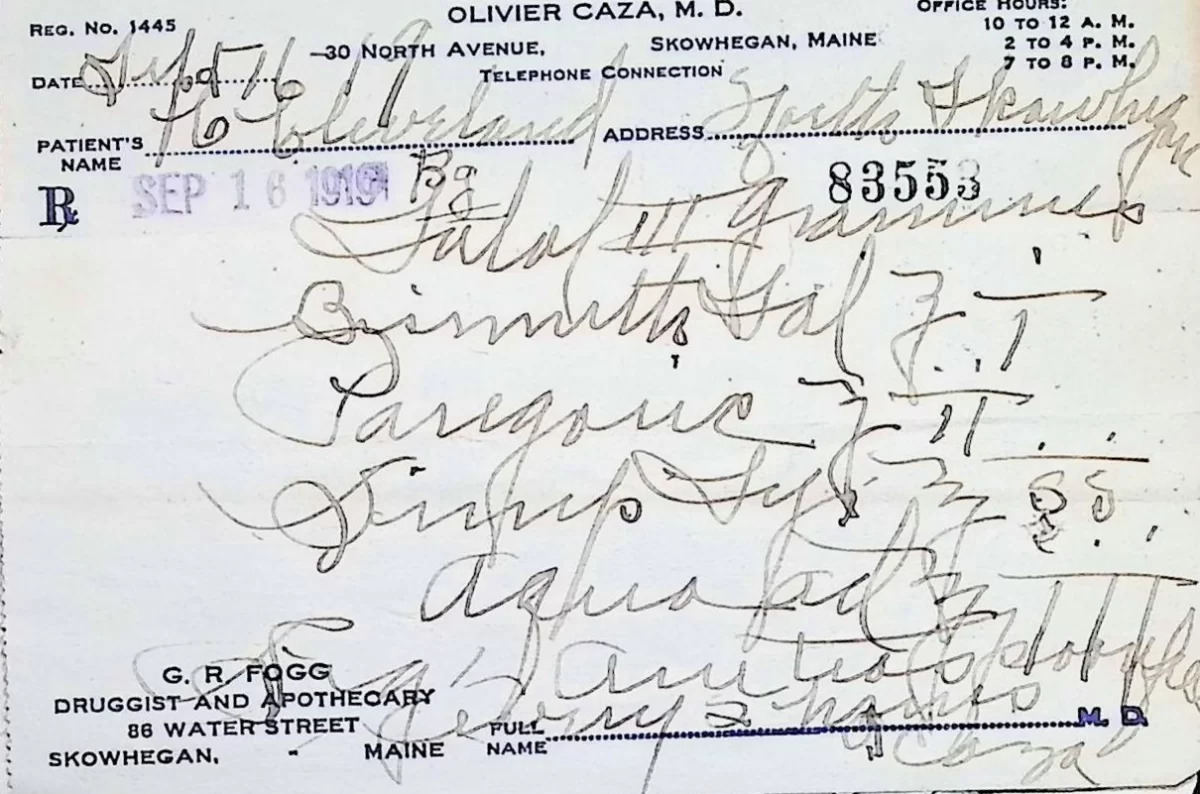 OLIVIER CAZA, M. D.
REG. NO. 1445
OFFICE HOURS:
10 TO 12 A. M.
2 TO 4 P. M.
7 TO 8 P. M.
30 NORTH AVENUE, SKOWHEGAN, MAINE
TELEPHONE CONNECTION
DATE Sept 16 19
PATIENT'S NAME H Cleveland ADDRESS North Skowhegan
℞ SEP 16 1919 83553
Salol III grammes
Bismuth Sal ʒ I
Paregoric ʒ II
Simp Sy ʒ ss
Aqua ad ʒ III
every 2 hours
G. R. FOGG
DRUGGIST AND APOTHECARY
86 WATER STREET
SKOWHEGAN, - MAINE
FULL NAME Caza M. D.